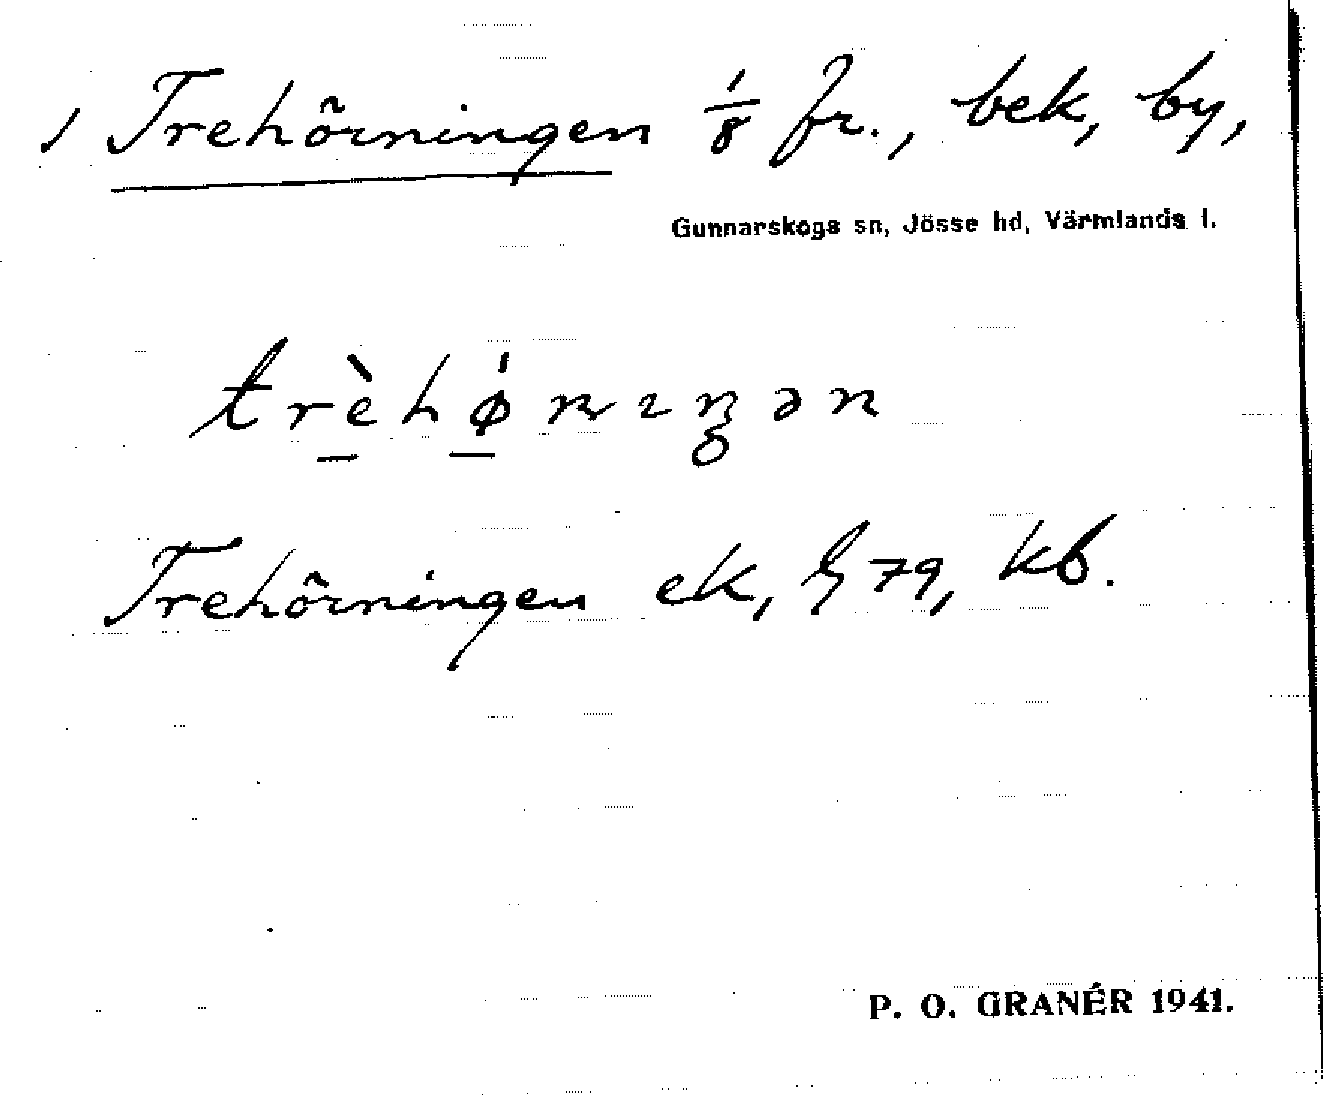 1 Trehörningen 1/8 fr., bek, by,
Gunnarskogs sn, Jösse hd, Värmlands l.
trèhǿnıŋən
Trehörningen ek, § 79, kb.
P. O. GRANÉR 1941.